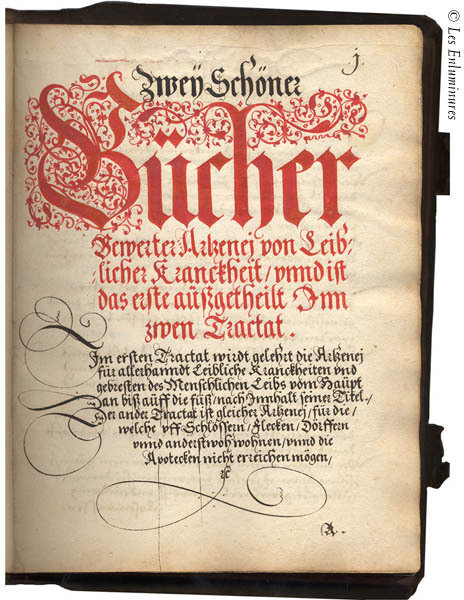 © Les Enluminures
j.
Zweÿ Schöner
Bücher
Bewerter Artzenej von Leib-
licher Kranckheit / vnnd ist
das erste aüßgetheilt Inn
zwen Tractat.
Im ersten Tractat wirdt gelehrt die Artzenej
für allerhanndt Leibliche Kranckheiten vnd
gebresten des Menschlichen Leibs vom Haüpt
an biß aüff die füß / nach Innhalt seiner Titel.
Der ander Tractat ist gleicher Artzenej / für die /
welche vff Schlössern / Flecken / Dörffern
vnnd anderstwoh wohnen / vnnd die
Apotecken nicht erreichen mögen /
A.